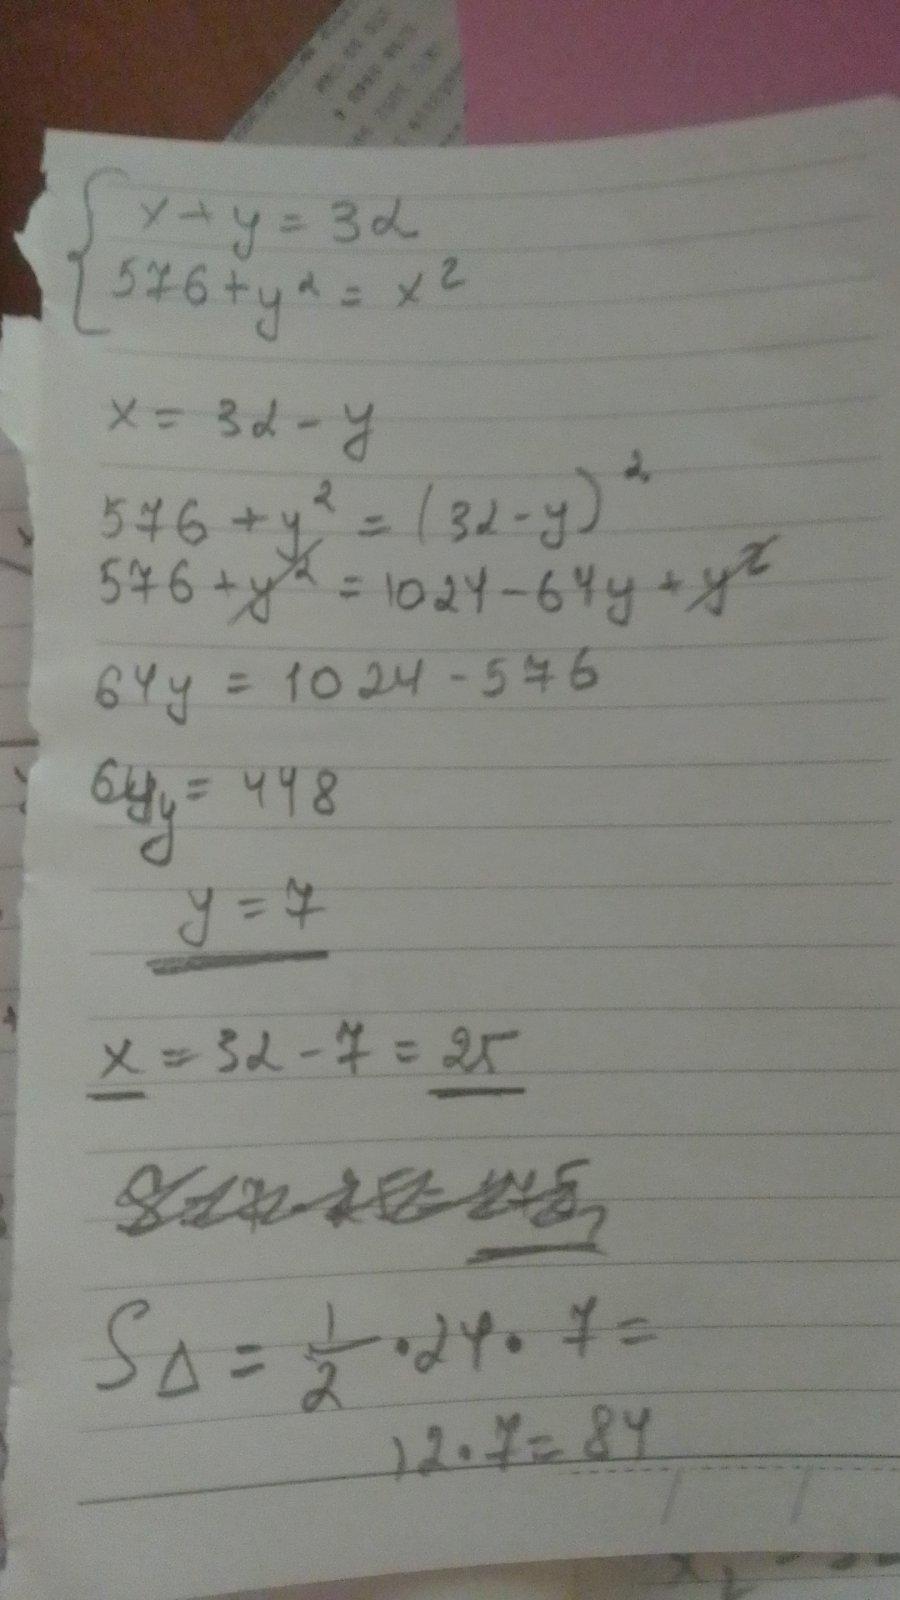 x + y = 32
576 + y² = x²
x = 32 - y
576 + y² = (32 - y)²
576 + y² = 1024 - 64y + y²
64y = 1024 - 576
64y = 448
y = 7
x = 32 - 7 = 25
S△ = 1/2 · 24 · 7 =
12 · 7 = 84